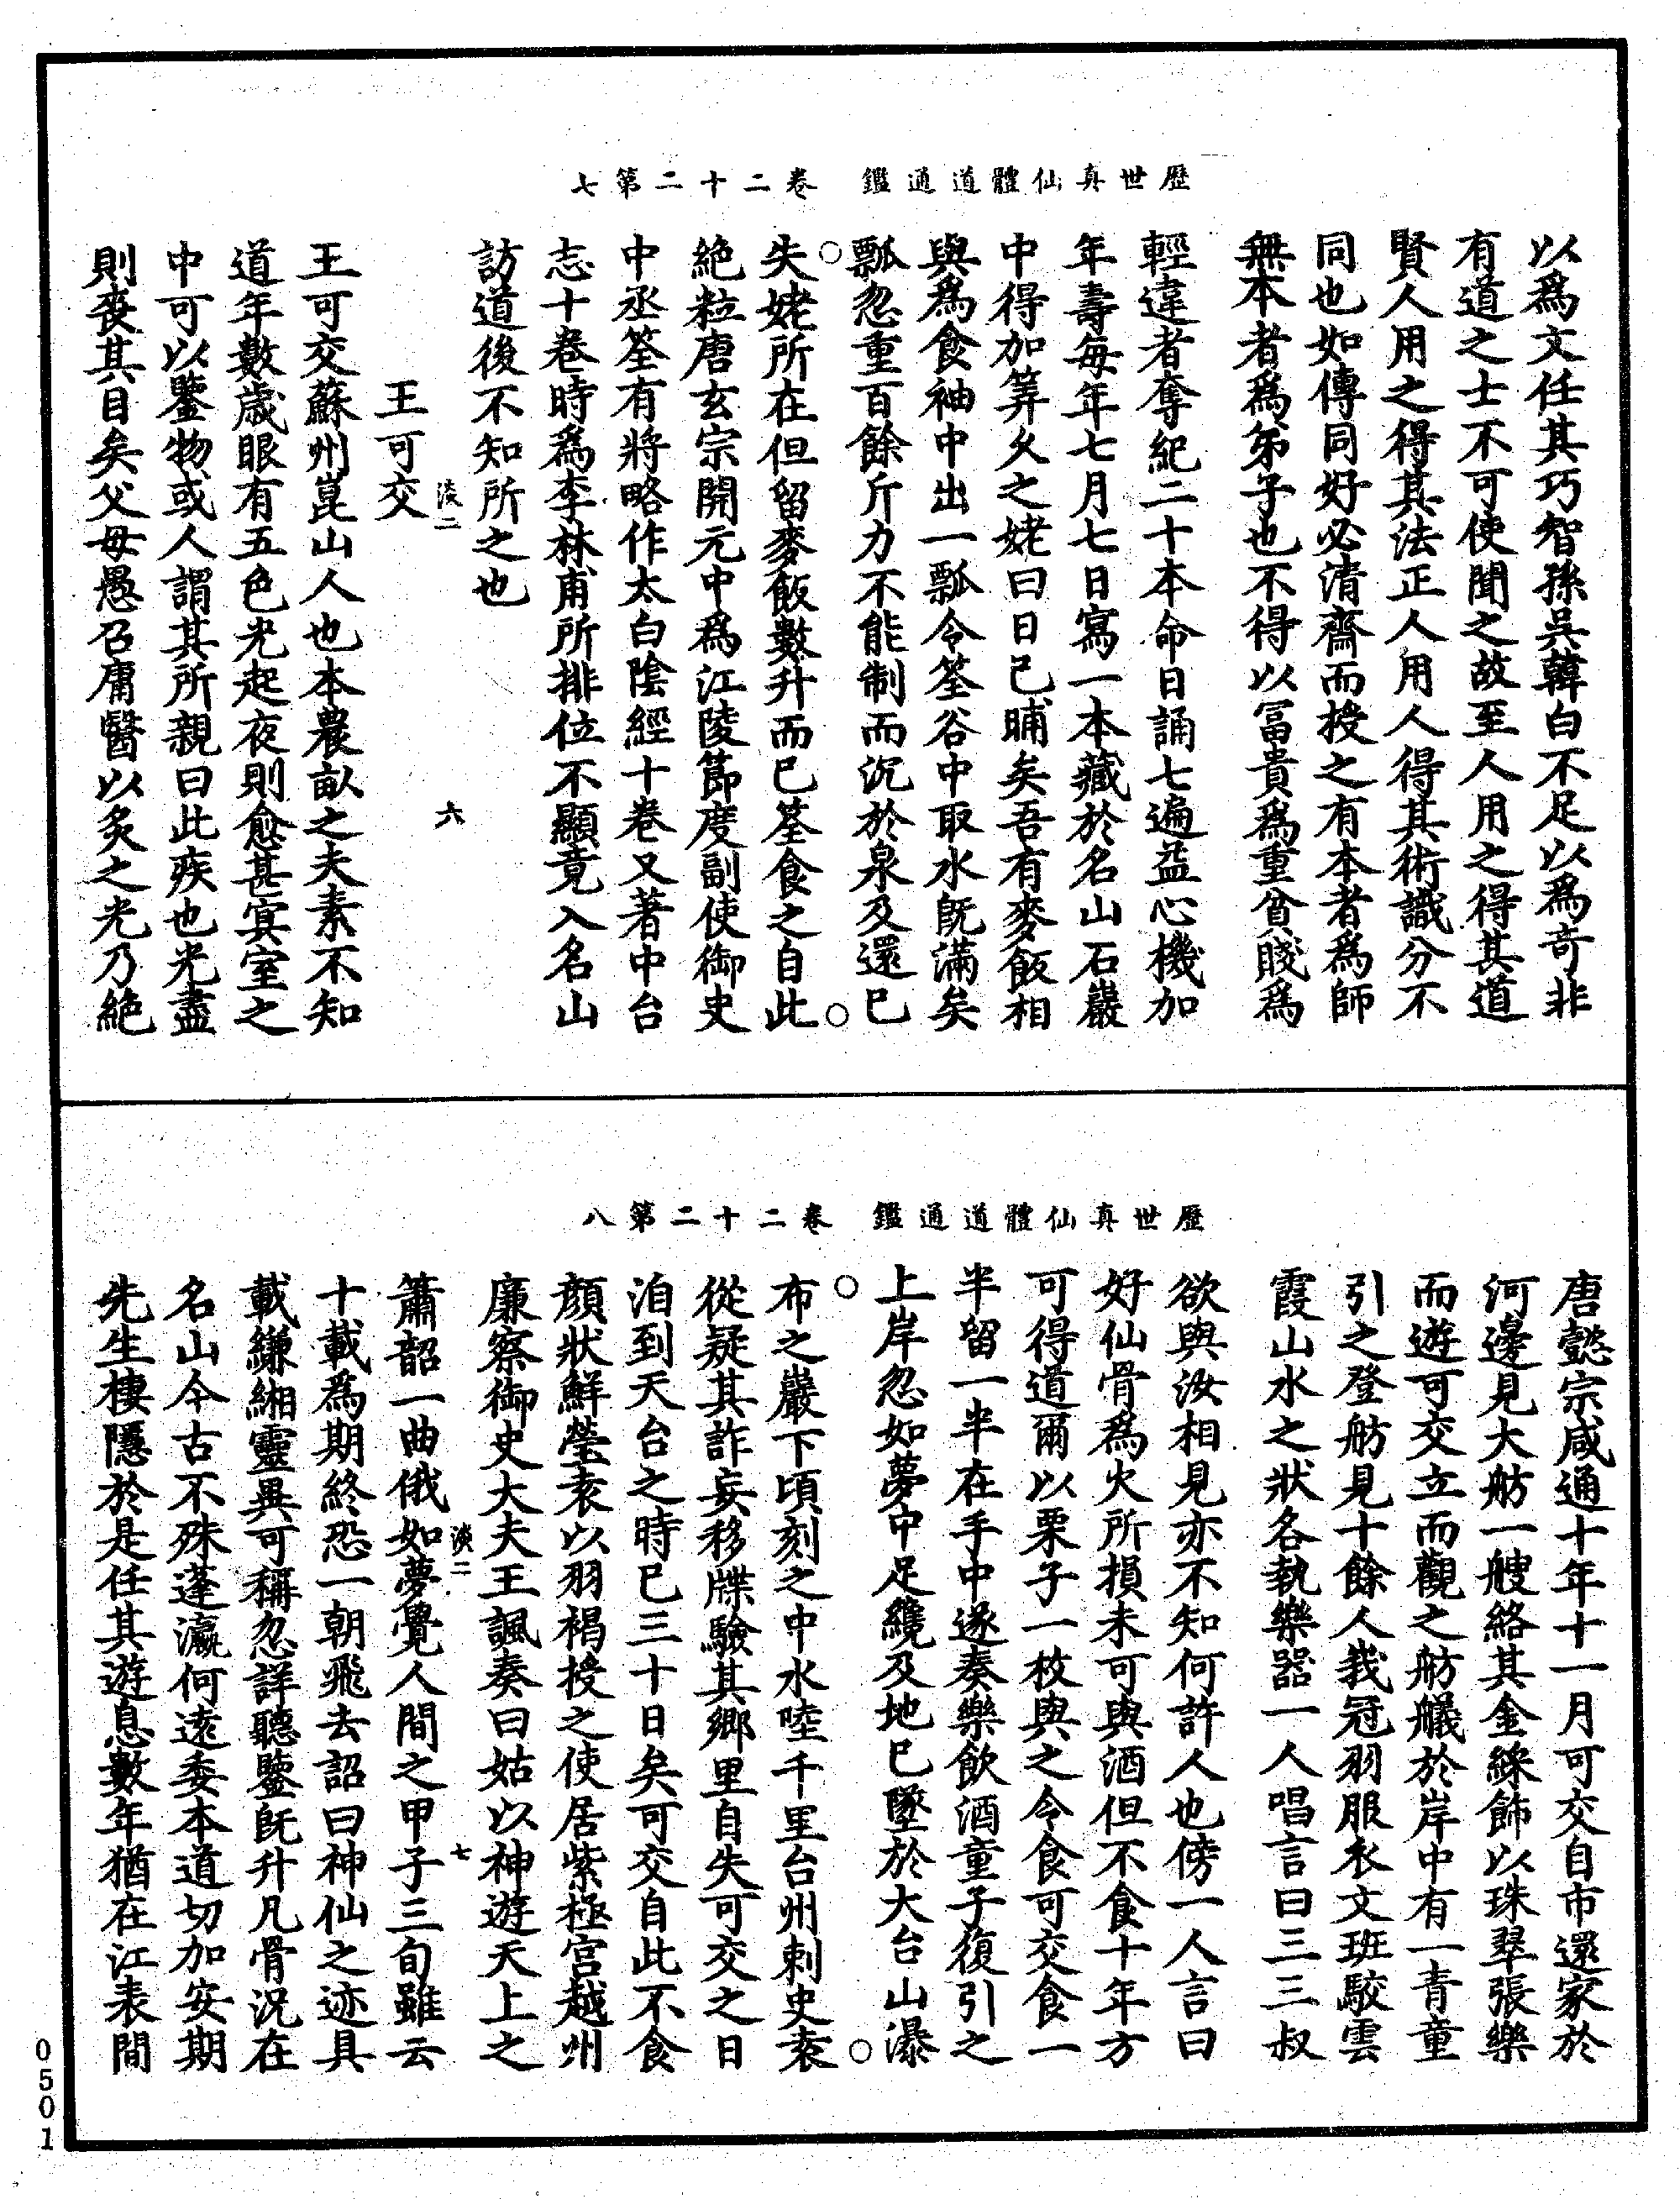 歷世真仙體道通鑑　卷二十二第七
以爲文任其巧智孫吳韓白不足以爲奇非
有道之士不可使聞之故至人用之得其道
賢人用之得其法正人用人得其術識分不
同也如傳同好必清齋而授之有本者爲師
無本者爲弟子也不得以冨貴爲重貧賤爲
輕違者奪紀二十本命日誦七遍益心機加
年壽每年七月七日寫一本藏於名山石巖
中得加筭久之姥曰日已晡矣吾有麥飯相
與爲食袖中出一瓢令筌谷中取水旣滿矣
瓢忽重百餘斤力不能制而沉於泉及還已
失姥所在但留麥飯數升而已筌食之自此
絶粒唐玄宗開元中爲江陵節度副使御史
中丞筌有將略作太白陰經十卷又著中台
志十卷時爲李林甫所排位不顯竟入名山
訪道後不知所之也
淡二　六
王可交
王可交蘇州崑山人也本農畝之夫素不知
道年數歲眼有五色光起夜則愈甚㝠室之
中可以鑒物或人謂其所親曰此疾也光盡
則喪其目矣父母愚召庸醫以炙之光乃絶
歷世真仙體道通鑑　卷二十二第八
唐懿宗咸通十年十一月可交自市還家於
河邊見大舫一艘絡其金綵飾以珠翠張樂
而遊可交立而觀之舫艤於岸中有一青童
引之登舫見十餘人峩冠羽服衣文班駮雲
霞山水之狀各執樂器一人唱言曰三三叔
欲與汝相見亦不知何許人也傍一人言曰
好仙骨爲火所損未可與酒但不食十年方
可得道爾以栗子一枚與之令食可交食一
半留一半在手中遂奏樂飲酒童子復引之
上岸忽如夢中足纔及地已墜於大台山瀑
布之巖下頃刻之中水陸千里台州刺史袁
從疑其詐妄移牒驗其鄉里自失可交之日
洎到天台之時已三十日矣可交自此不食
顔狀鮮瑩袁以羽褐授之使居紫極宫越州
廉察御史大夫王諷奏曰姑以神遊天上之
淡二　七
簫韶一曲俄如夢覺人間之甲子三旬雖云
十載爲期終恐一朝飛去詔曰神仙之迹具
載縑緗靈異可稱忽詳聽鑒旣升凡骨況在
名山今古不殊蓬瀛何遠委本道切加安期
先生棲隱於是任其遊息數年猶在江表間
0501